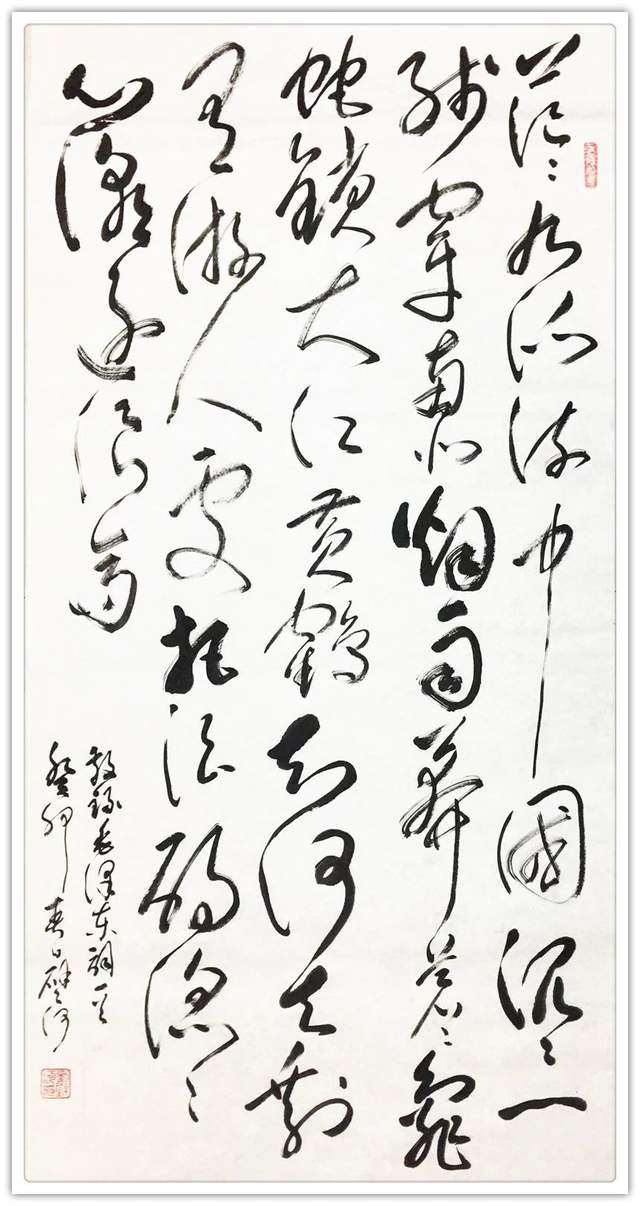 茫〻九派流中國沉〻一
线穿南北烟雨莽苍〻龜
蛇鎖大江黄鹤知何去剩
有游人处把酒酹滔〻
心潮逐浪高
敬録毛泽东詞一首
癸卯春